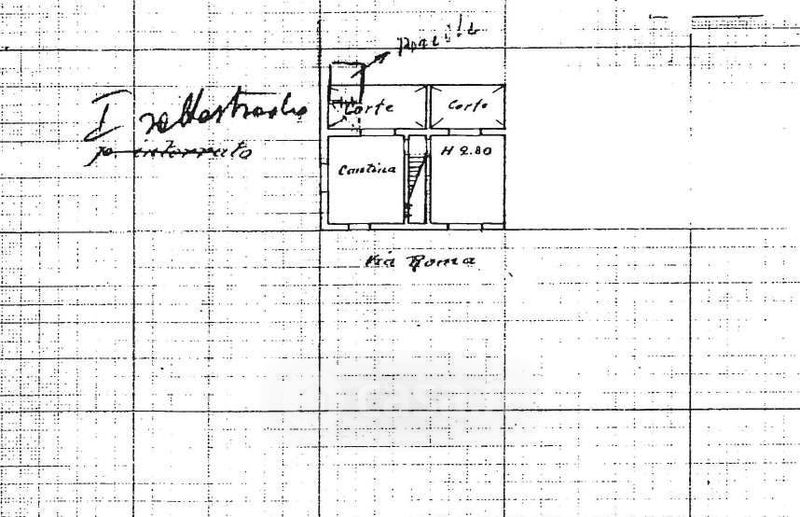 I sottostrada
p. interrato
Corte
Corte
Cantina
H 2.80
Via Roma